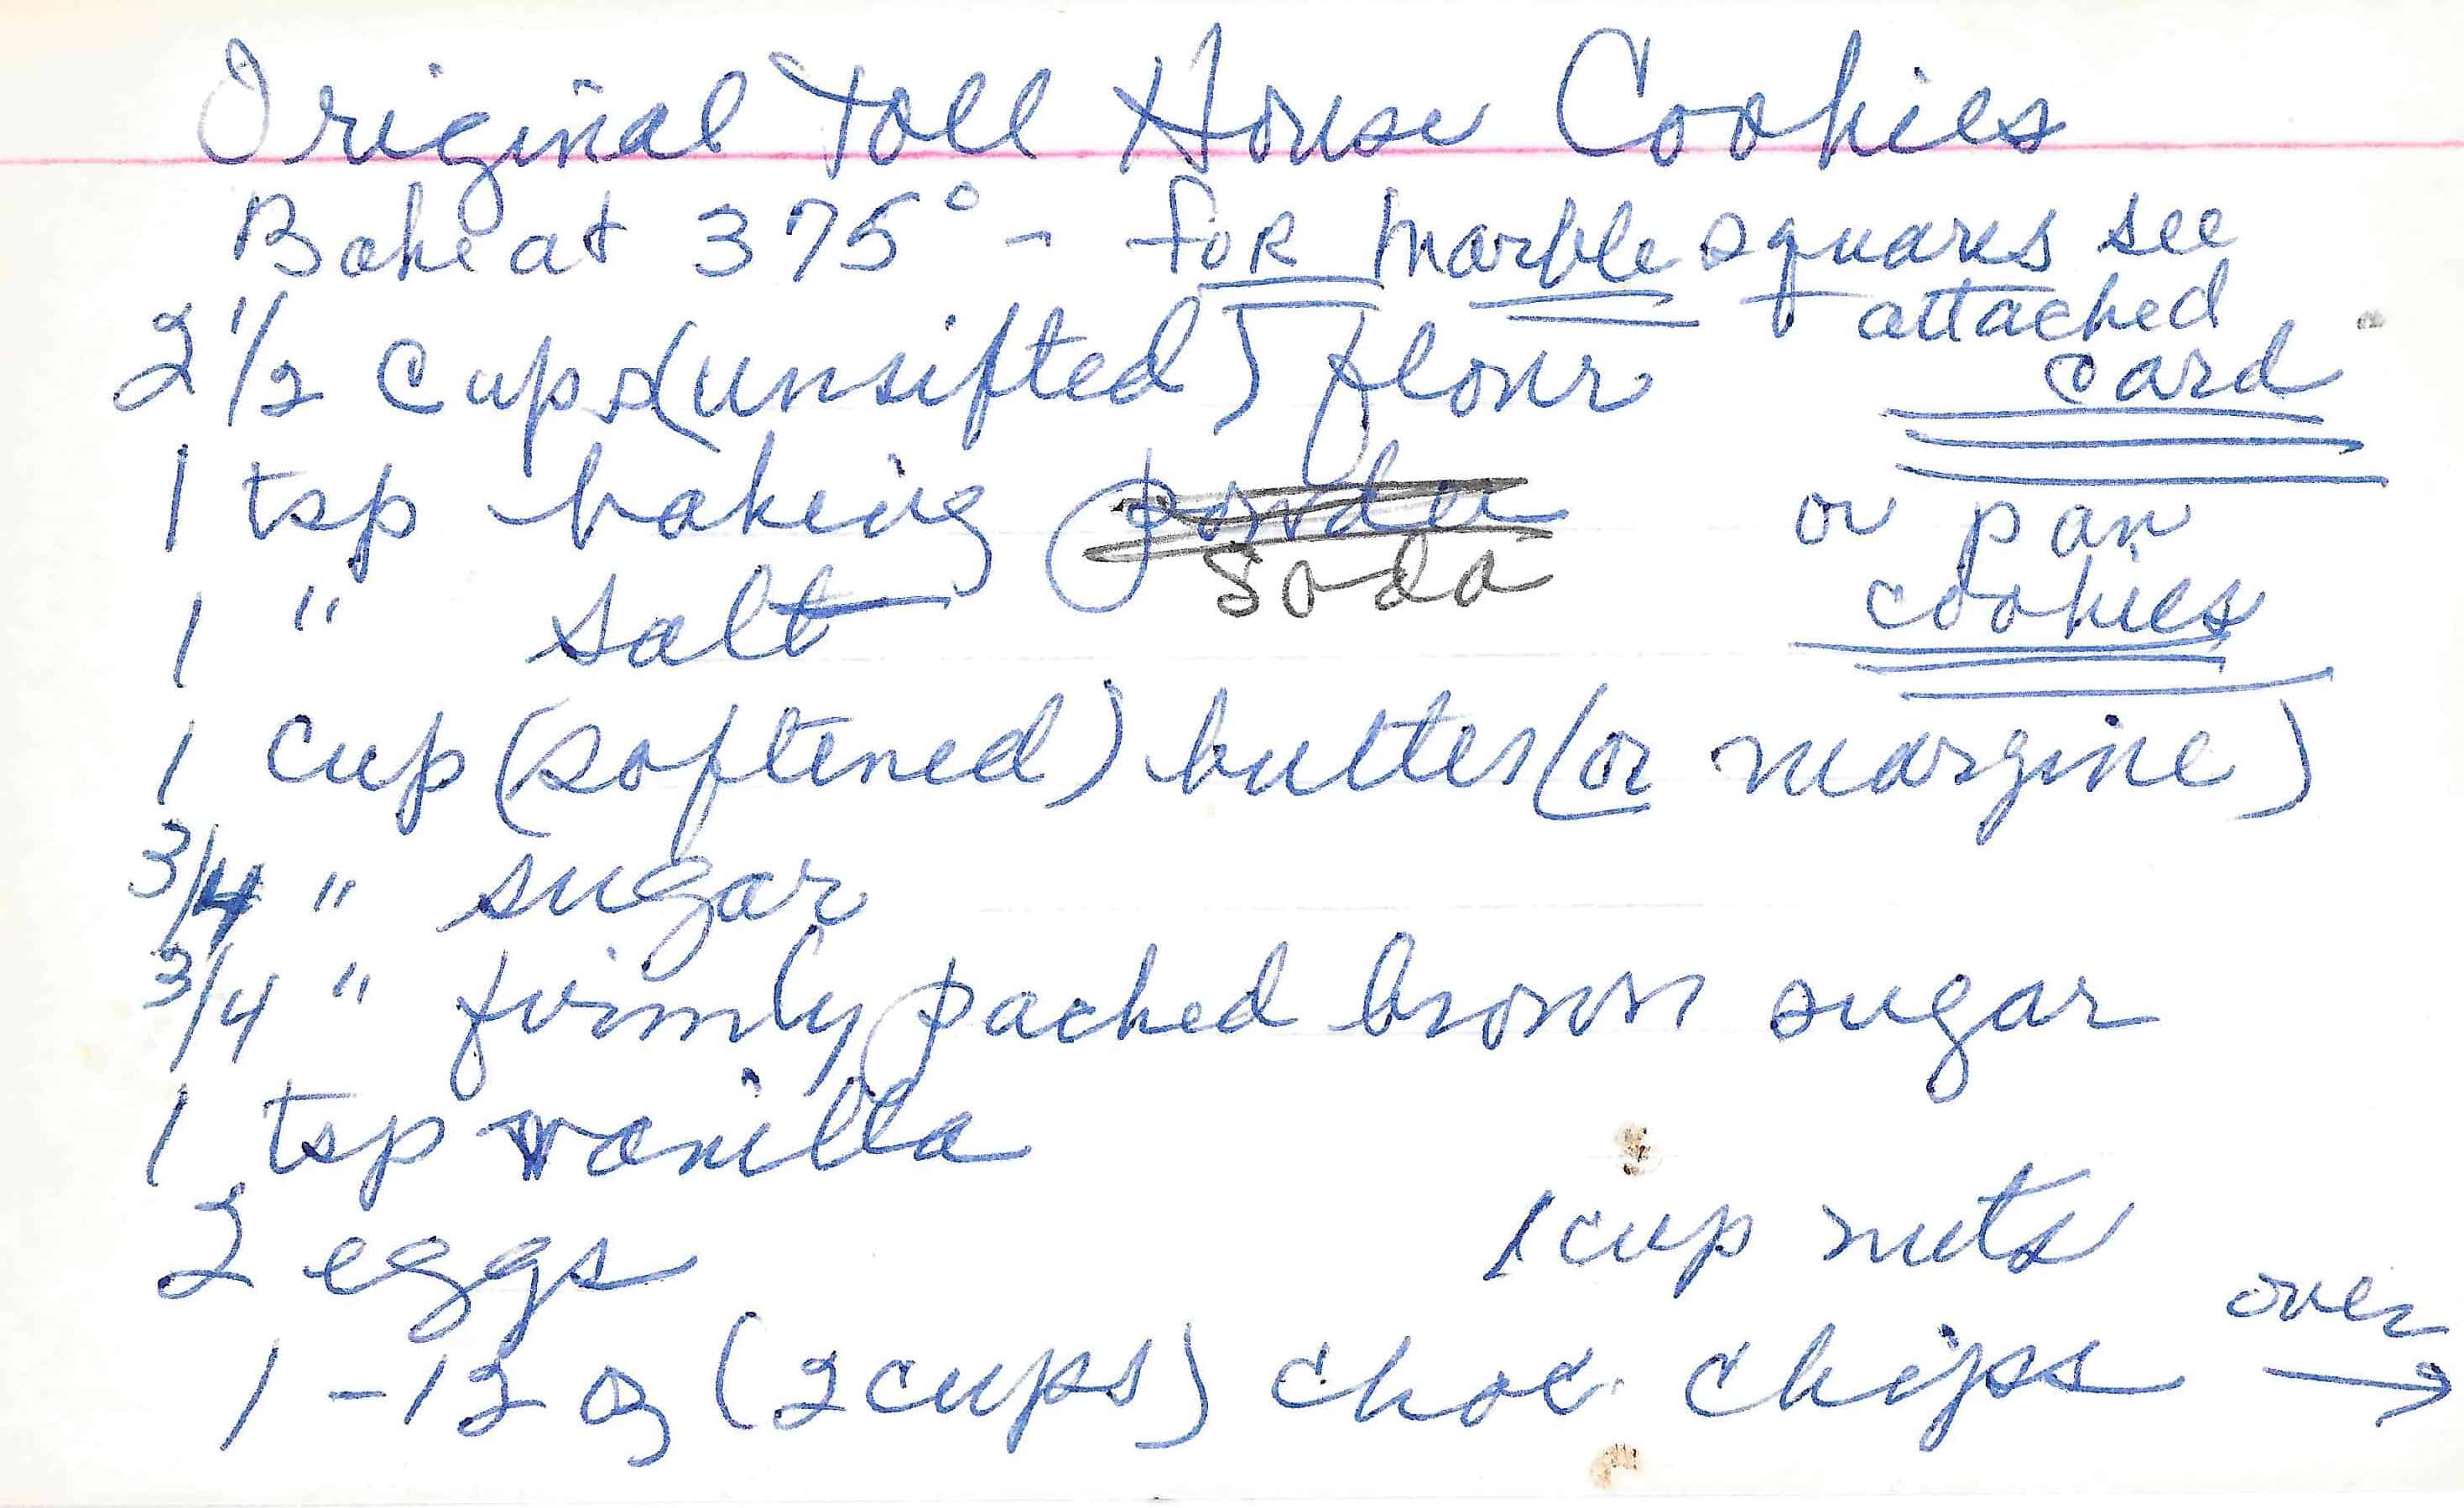 Original Toll House Cookies
Bake at 375° - for marble squares see
attached
card
2 1/2 cups (unsifted) flour
1 tsp baking powder
soda
or pan
cookies
1 " salt
1 cup (softened) butter (or margine)
3/4 " sugar
3/4 " firmly packed brown sugar
1 tsp vanilla
2 eggs
1 cup nuts
1 - 12 oz (2 cups) choc. chips
over →